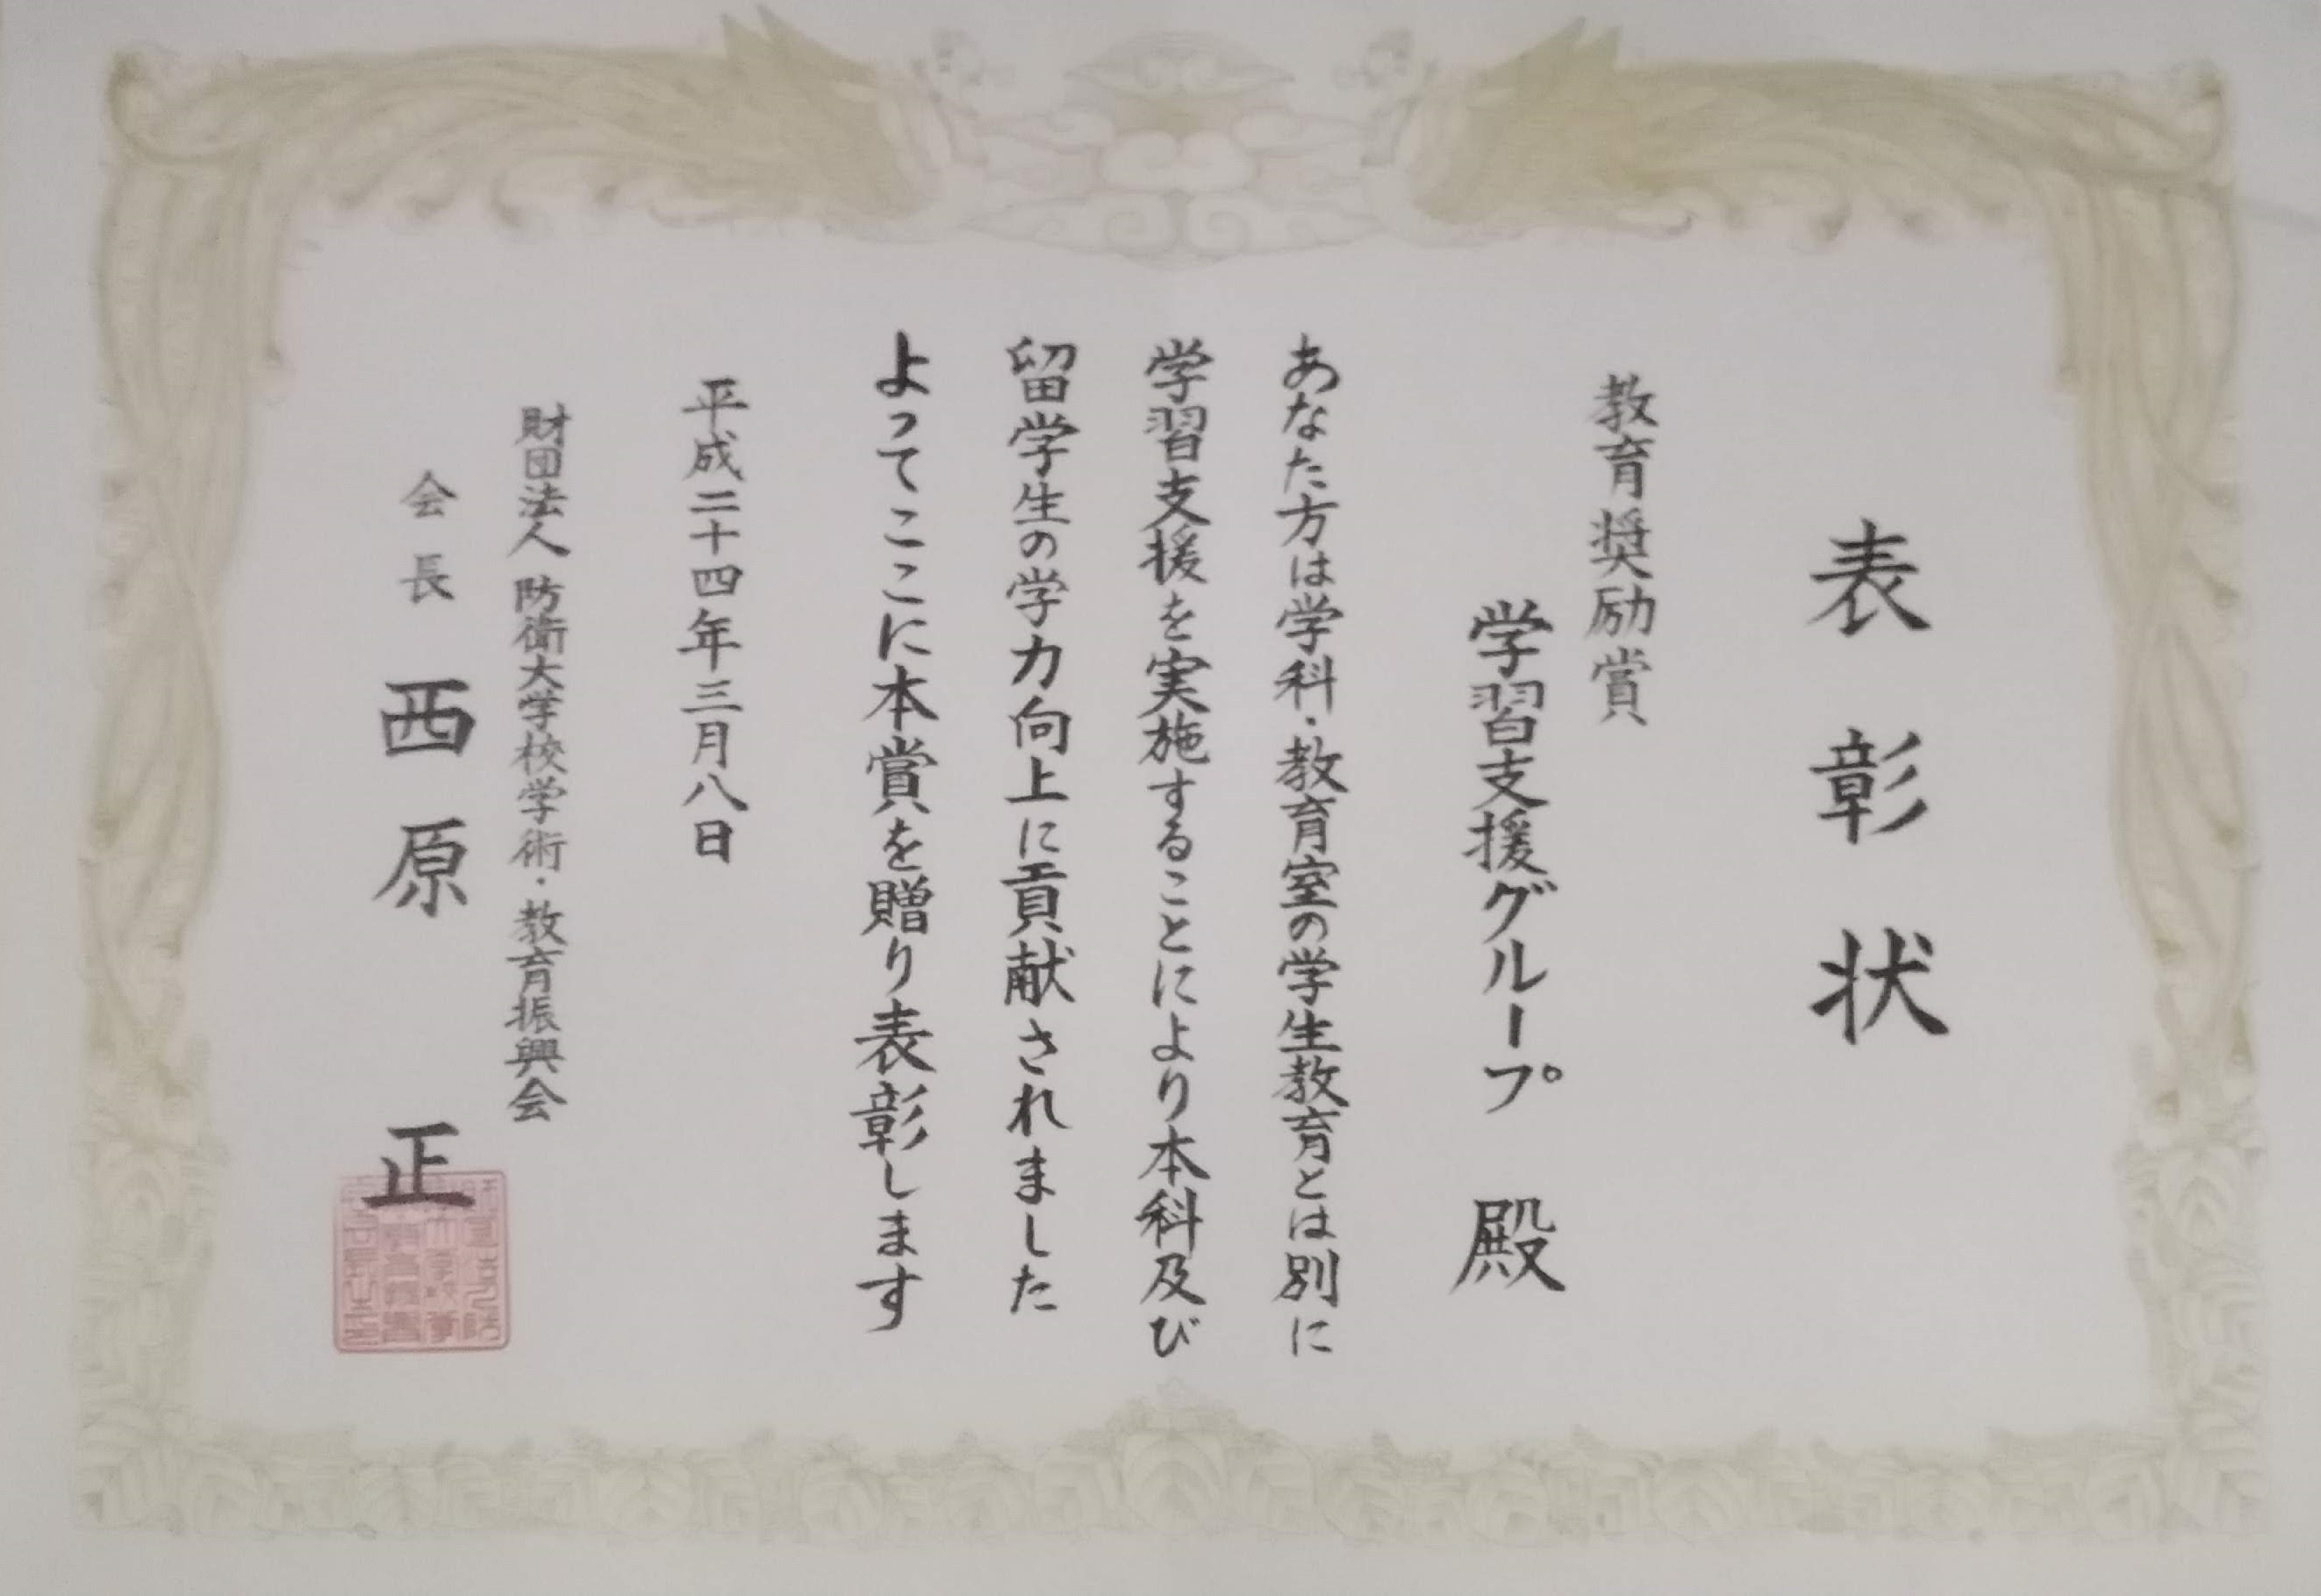 表彰状
教育奨励賞
学習支援グループ 殿
あなた方は学科・教育室の学生教育とは別に
学習支援を実施することにより本科及び
留学生の学力向上に貢献されました
よってここに本賞を贈り表彰します
平成二十四年三月八日
財団法人 防衛大学校学術・教育振興会
会長 西原 正